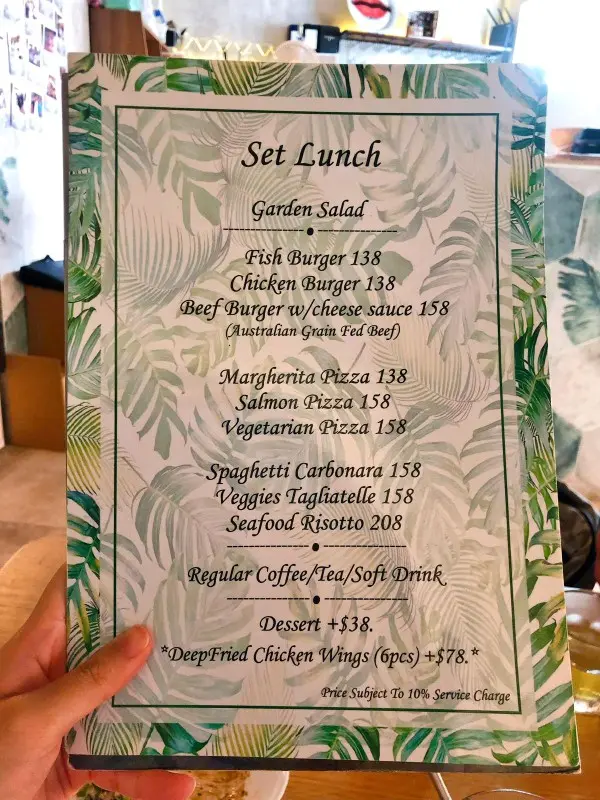 Set Lunch
Garden Salad
Fish Burger 138
Chicken Burger 138
Beef Burger w/cheese sauce 158
(Australian Grain Fed Beef)
Margherita Pizza 138
Salmon Pizza 158
Vegetarian Pizza 158
Spaghetti Carbonara 158
Veggies Tagliatelle 158
Seafood Risotto 208
Regular Coffee/Tea/Soft Drink
Dessert +$38.
*DeepFried Chicken Wings (6pcs) +$78.*
Price Subject To 10% Service Charge